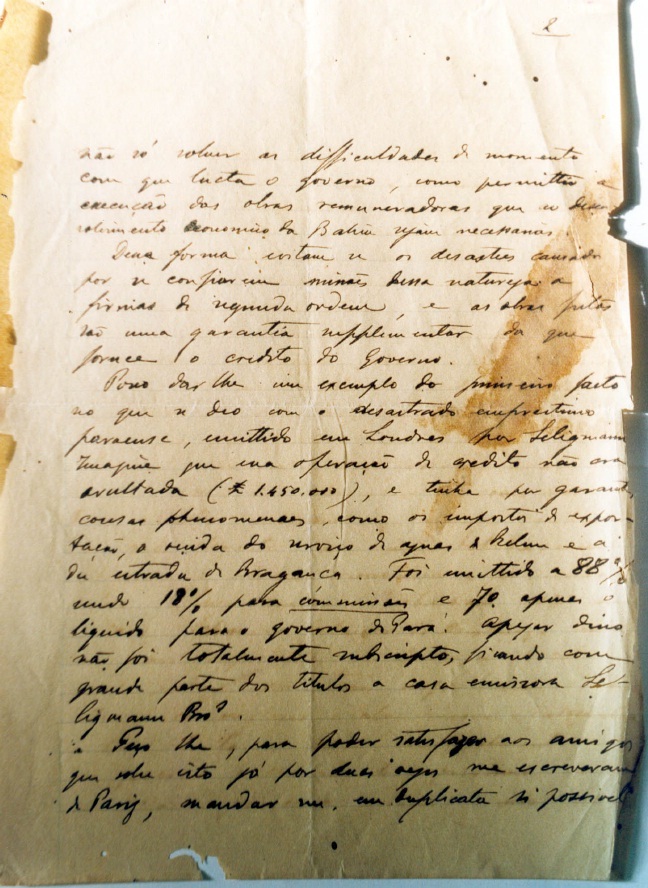 2
não só solver as difficuldades do momento
com que lucta o governo, como permittir a
execução das obras remuneradoras que ao desen
volvimento economico da Bahia sejam necessarias.
Dessa forma evitam se os desastres causados
por se confiarem missões dessa natureza a
firmas de segunda ordem, e as obras feitas
são uma garantia supplementar da que
fornece o credito do Governo.
Posso dar lhe um exemplo do primeiro facto
no que se deo com o desastrado emprestimo
paraense, emittido em Londres por Seligmann
Imagine que essa operação de credito não era
avultada (£ 1.450.000), e tinha por garantia
cousas phenomenaes, como os impostos de expor-
tação, a renda do serviço de aguas de Belem e a
da estrada de Bragança. Foi emittido a 88%
sendo 18% para commissões e 70 apenas o
liquido para o governo do Pará. Apezar disso
não foi totalmente subscripto, ficando com
grande parte dos titulos a casa emissora Se-
ligmann Bros.
Peço lhe, para poder satisfazer aos amigos
que sobre isto já por duas vezes me escreveram
de Pariz, mandar me, em duplicata si possivel